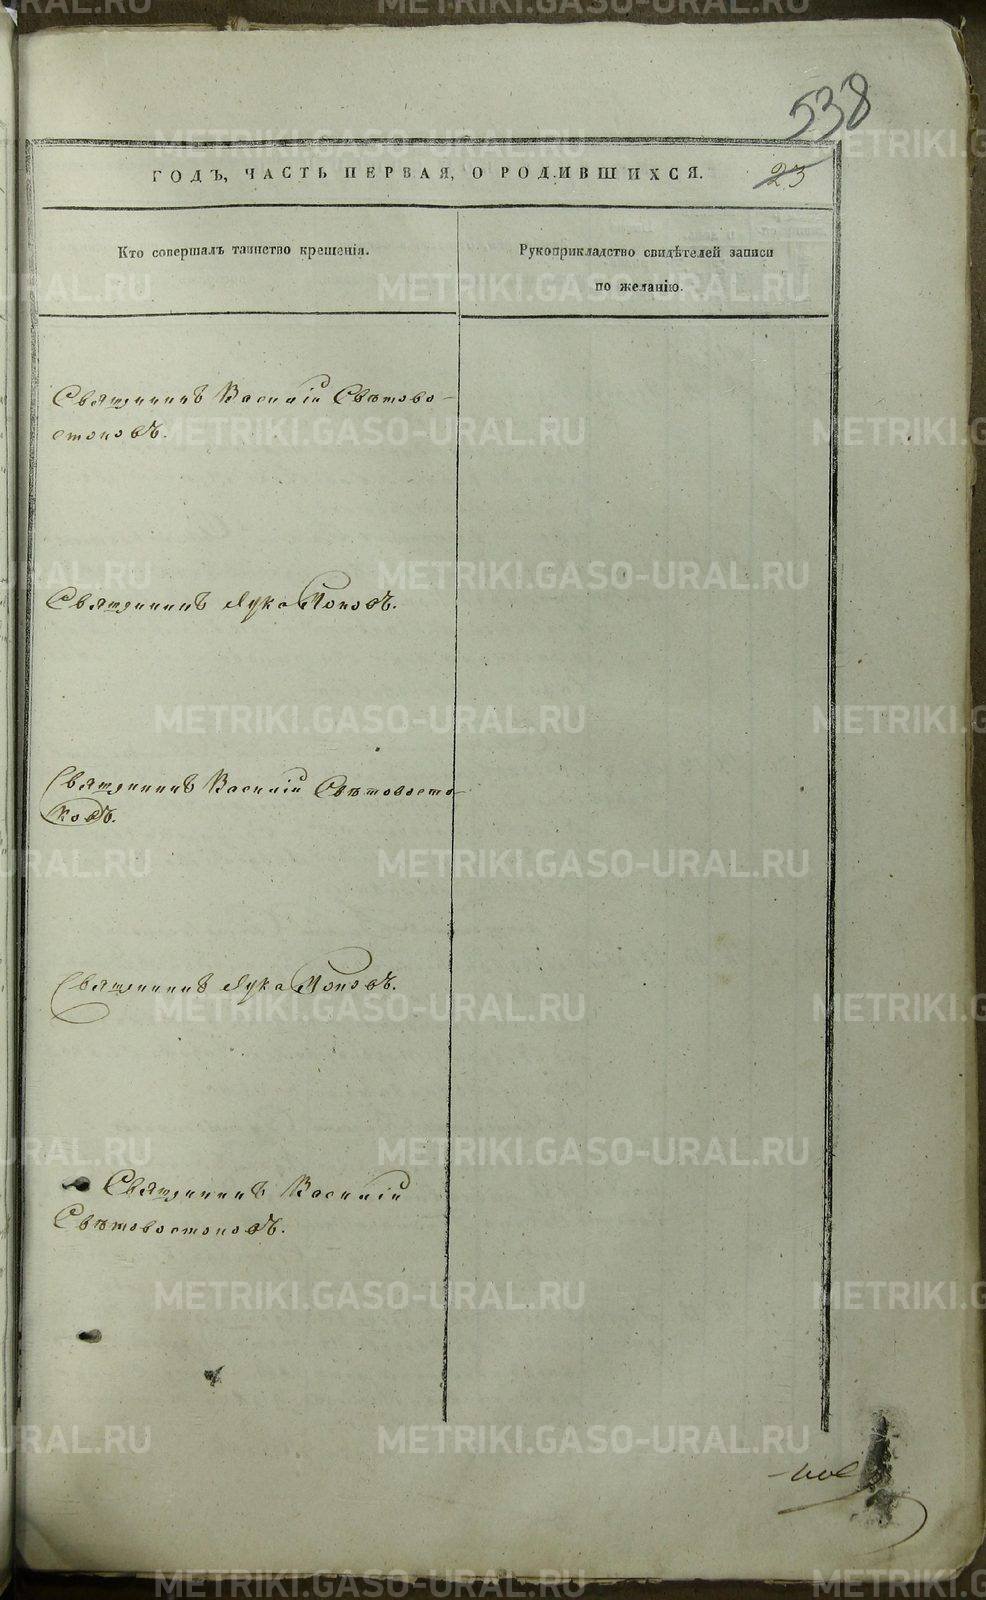 538
ГОДЪ, ЧАСТЬ ПЕРВАЯ, О РОДИВШИХСЯ.
23
Кто совершалъ таинство крещенія.
Рукоприкладство свидѣтелей записи
по желанію.
Священникъ Василій Свѣтово-
стоковъ.
Священникъ Лука Поповъ.
Священникъ Василій Свѣтовосто-
ковъ.
Священникъ Лука Поповъ.
Священникъ Василій
Свѣтовостоковъ.
METRIKI.GASO-URAL.RU